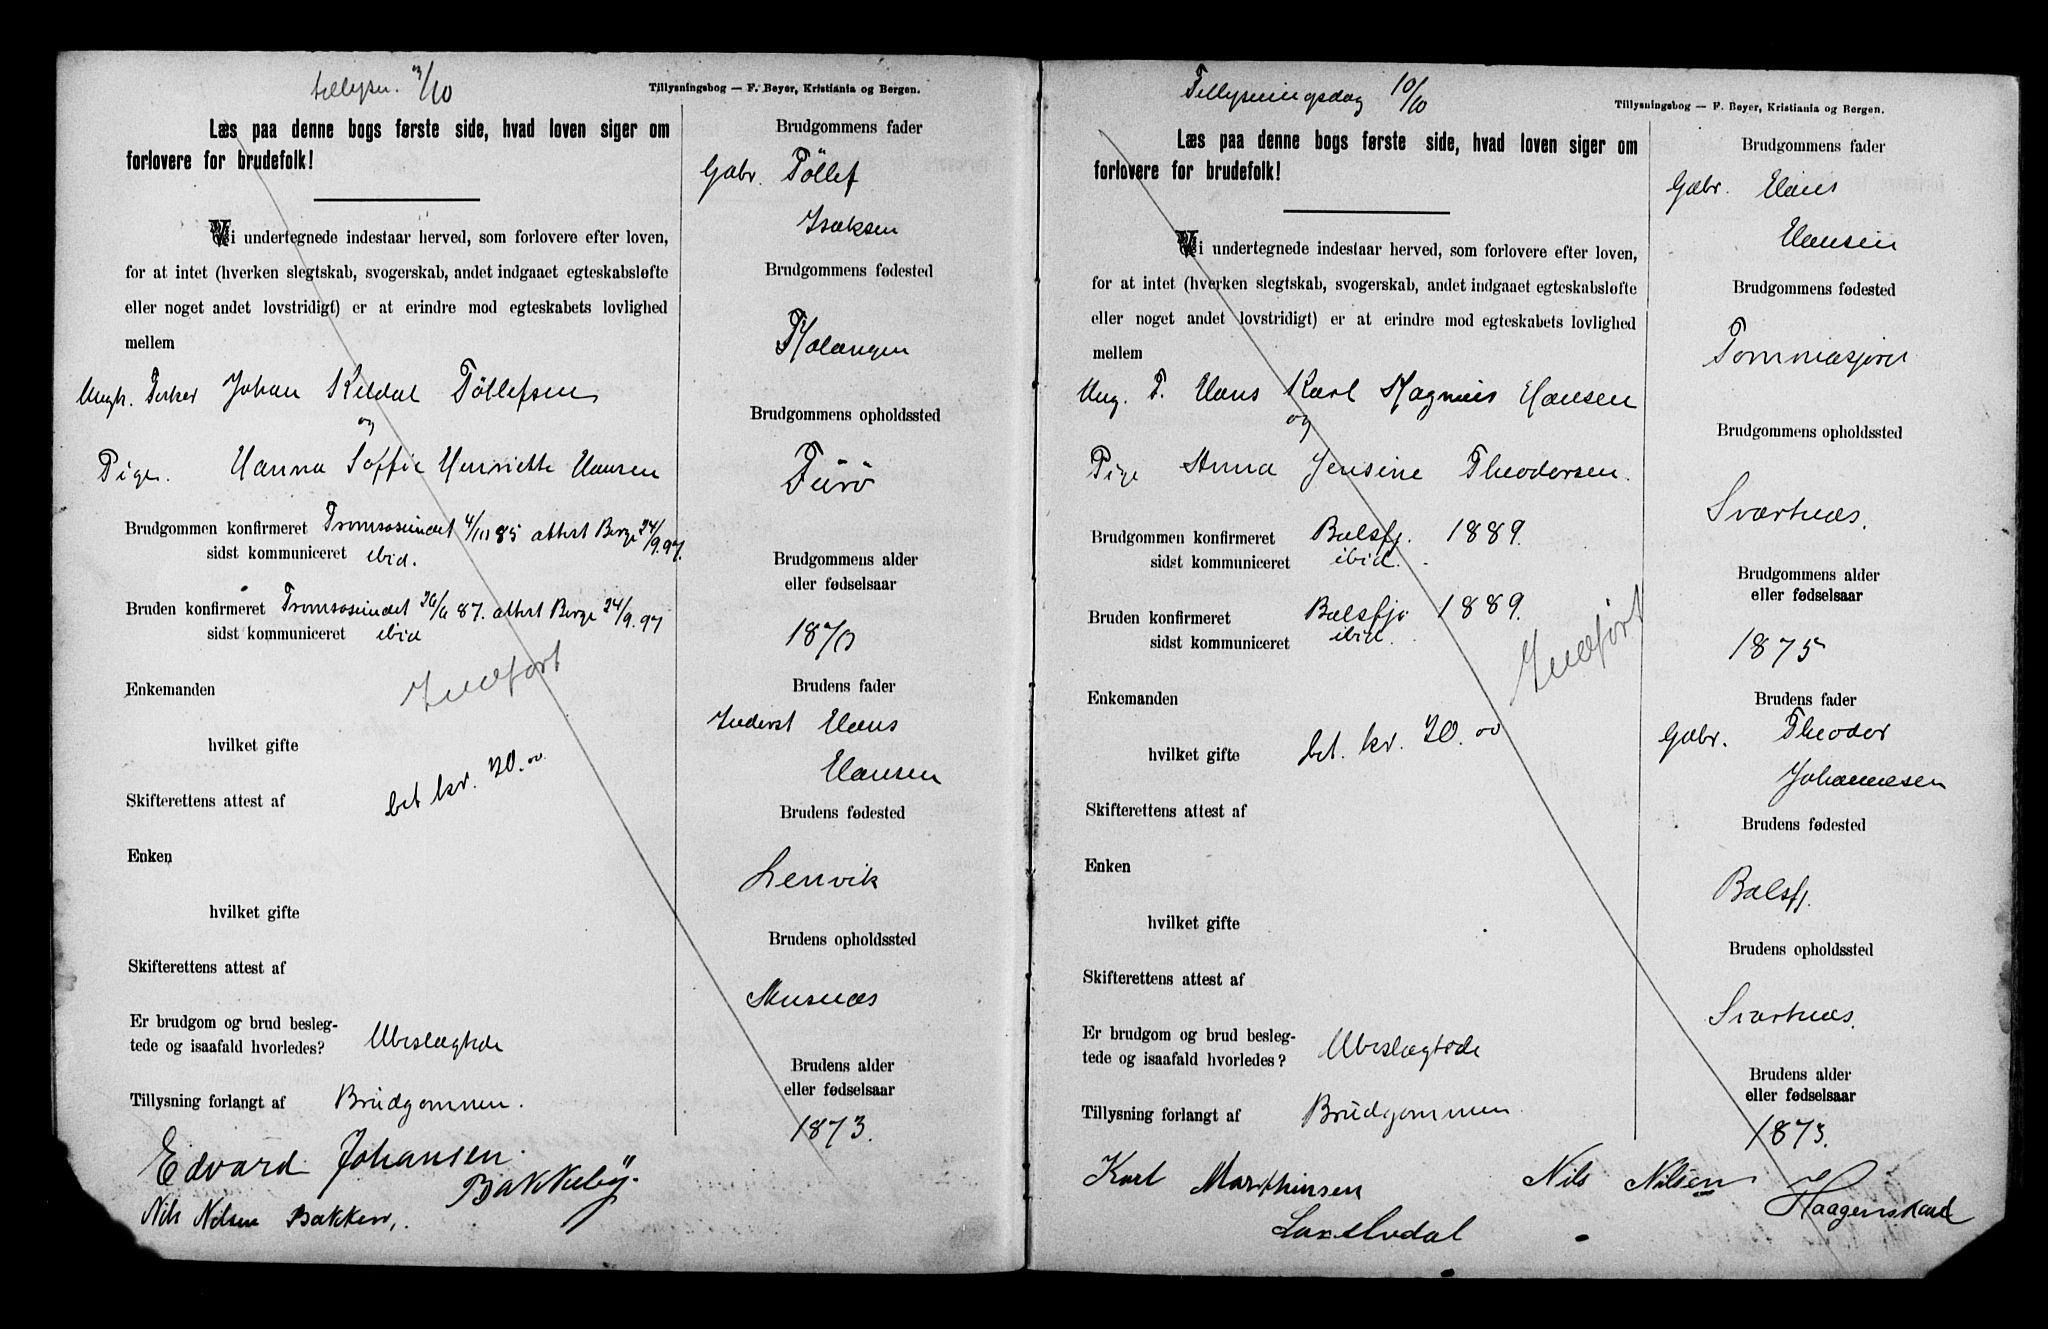 tillysn. 3/10
Tillysningsbog — F. Beyer, Kristiania og Bergen.
Læs paa denne bogs første side, hvad loven siger om
forlovere for brudefolk!
Vi undertegnede indestaar herved, som forlovere efter loven,
for at intet (hverken slegtskab, svogerskab, andet indgaaet egteskabsløfte
eller noget andet lovstridigt) er at erindre mod egteskabets lovlighed
mellem
Ungk. Johan Kildal Töllefsen
og
Pige. Hanna Soffie Henriette Hansen
Brudgommen konfirmeret Tromsøsundet 4/10 85 attest Berge 24/9.97.
sidst kommuniceret ibid.
Bruden konfirmeret Tromsøsundet 26/6 87. attest Berge 24/9.97
sidst kommuniceret ibid
Indført
Enkemanden
hvilket gifte
bet kr. 20.00
Skifterettens attest af
Enken
hvilket gifte
Skifterettens attest af
Er brudgom og brud besleg-
tede og isaafald hvorledes? Ubeslægtede
Tillysning forlangt af Brudgommen.
Edvard Johansen.
Bakkeby.
Nils Nilsen Bakken.
Brudgommens fader
Gabr. Töllef
Isaksen
Brudgommens fødested
Brudgommens opholdssted
Türø
Brudgommens alder
eller fødselsaar
1870
Brudens fader
Inderst Hans
Hansen
Brudens fødested
Lenvik
Brudens opholdssted
Brudens alder
eller fødselsaar
1873.
Tillysningsdag 10/10
Tillysningsbog — F. Beyer, Kristiania og Bergen.
Læs paa denne bogs første side, hvad loven siger om
forlovere for brudefolk!
Vi undertegnede indestaar herved, som forlovere efter loven,
for at intet (hverken slegtskab, svogerskab, andet indgaaet egteskabsløfte
eller noget andet lovstridigt) er at erindre mod egteskabets lovlighed
mellem
Ung. F. Hans Karl Magnus Hansen
og
Pige Anna Jensine Theodorsen.
Brudgommen konfirmeret Balsfj. 1889.
sidst kommuniceret ibid.
Bruden konfirmeret Balsfjo 1889.
sidst kommuniceret ibid.
Indført
Enkemanden
hvilket gifte bet. kr. 20.00
Skifterettens attest af
Enken
hvilket gifte
Skifterettens attest af
Er brudgom og brud besleg-
tede og isaafald hvorledes? Ubeslægtede
Tillysning forlangt af Brudgommen.
Karl Marthinsen
Laxelvdal
Nils Nilsen
Haagenskard
Brudgommens fader
Gabr. Hans
Hansen
Brudgommens fødested
Brudgommens opholdssted
Svartnæs.
Brudgommens alder
eller fødselsaar
1875
Brudens fader
Gabr. Theodor
Johannesen
Brudens fødested
Balsfj.
Brudens opholdssted
Svartnæs.
Brudens alder
eller fødselsaar
1873.